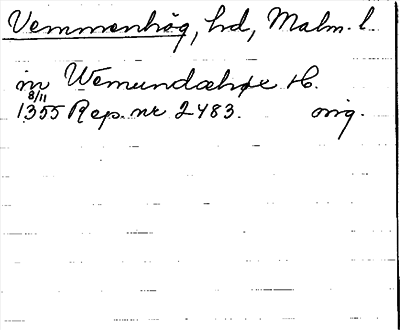 Vemmenhög, hd, Malm. l.
in Wemundæhøxe H.
8/11
1355 Rep. nr 2483. orig.